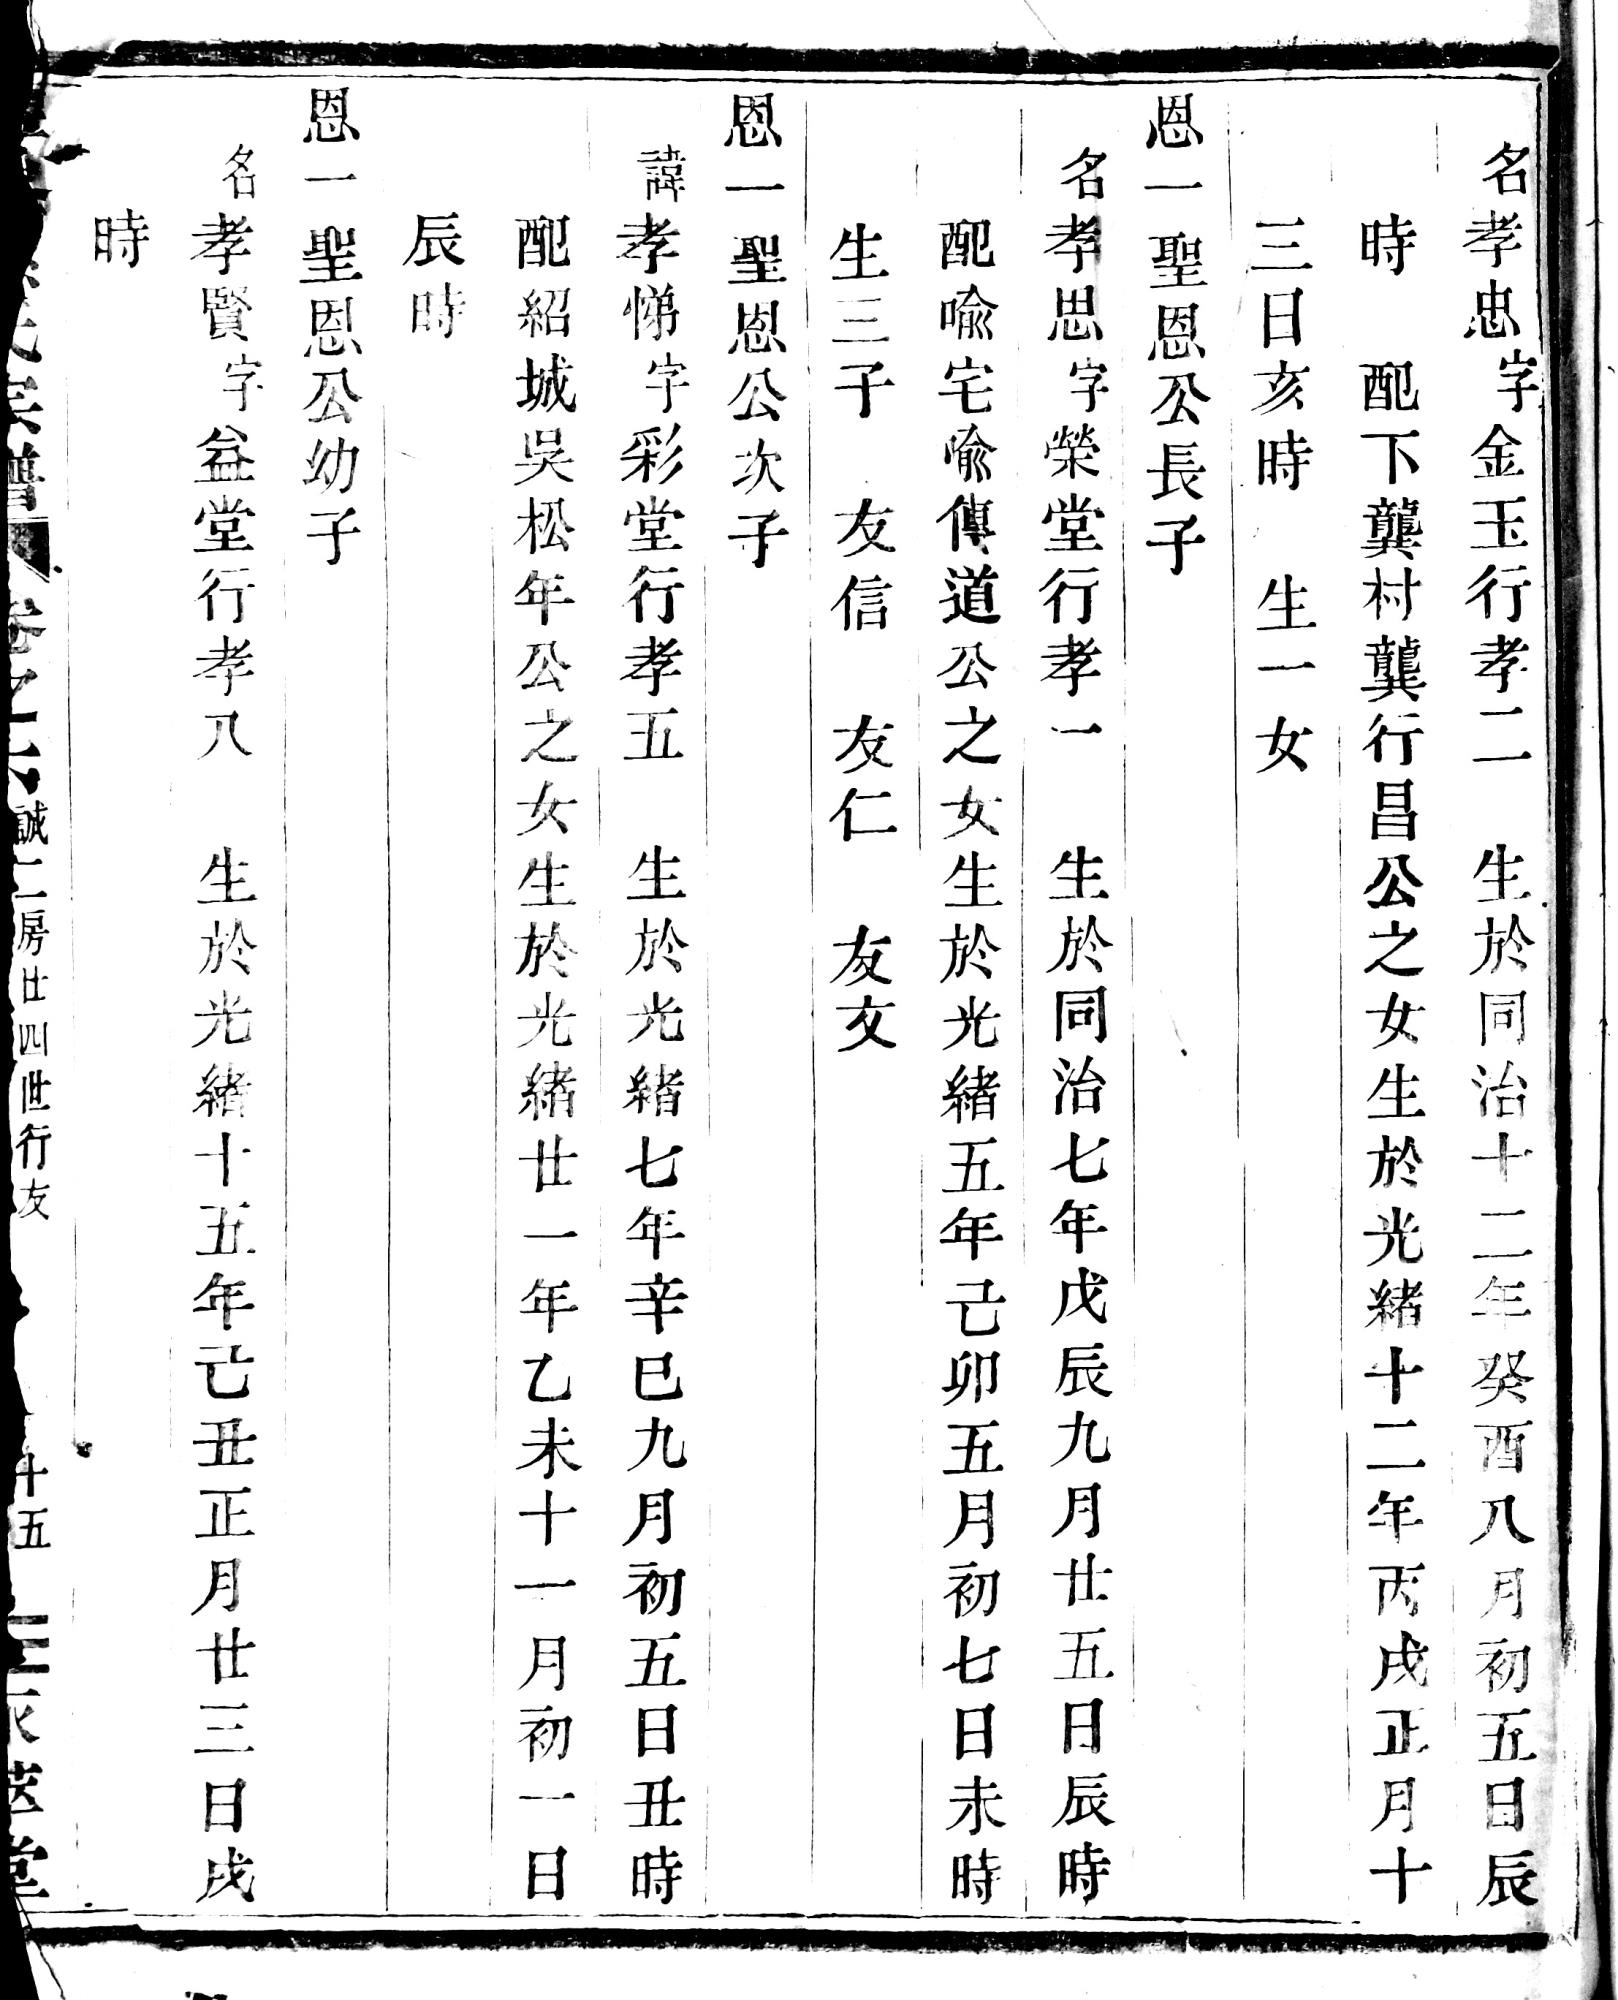 名孝忠字金玉行孝二　生於同治十二年癸酉八月初五日辰
時　配下龔村龔行昌公之女生於光緒十二年丙戌正月十
三日亥時　生一女
恩一聖恩公長子
名孝思字榮堂行孝一　生於同治七年戊辰九月廿五日辰時
配喩宅喩傳道公之女生於光緒五年己卯五月初七日未時
生三子　友信　友仁　友文
恩一聖恩公次子
諱孝悌字彩堂行孝五　生於光緒七年辛巳九月初五日丑時
配紹城吳松年公之女生於光緒廿一年乙未十一月初一日
辰時
恩一聖恩公幼子
名孝賢字益堂行孝八　生於光緒十五年己丑正月廿三日戌
時
氏宗譜　卷之六　誠二房廿四世行友　十五　萃堂